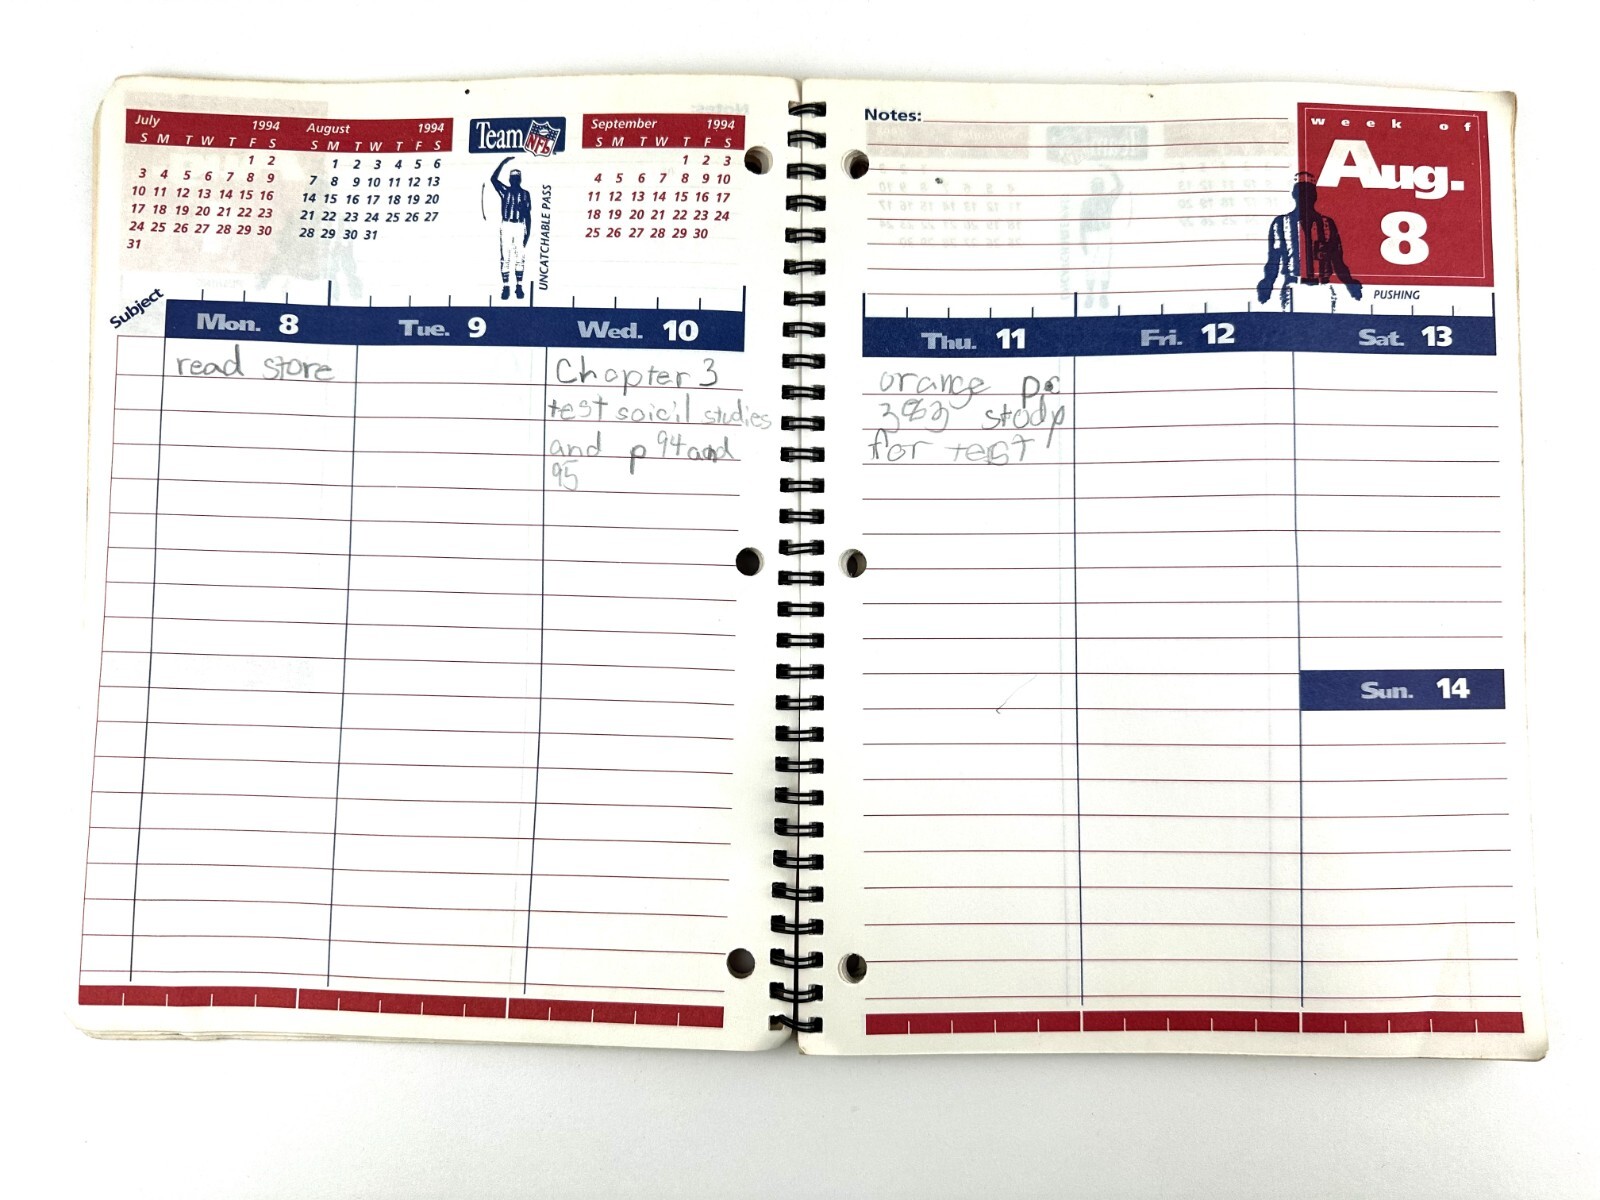 July 1994
S M T W T F S
1 2
3 4 5 6 7 8 9
10 11 12 13 14 15 16
17 18 19 20 21 22 23
24 25 26 27 28 29 30
31
August 1994
S M T W T F S
1 2 3 4 5 6
7 8 9 10 11 12 13
14 15 16 17 18 19 20
21 22 23 24 25 26 27
28 29 30 31
Team NFL
UNCATCHABLE PASS
September 1994
S M T W T F S
1 2 3
4 5 6 7 8 9 10
11 12 13 14 15 16 17
18 19 20 21 22 23 24
25 26 27 28 29 30
Subject
Mon. 8
read store
Tue. 9
Wed. 10
Chapter 3
test soicil studies
and p 94 and
95
Notes:
week of
Aug.
8
PUSHING
Thu. 11
orange
study
for test
Fri. 12
Sat. 13
Sun. 14